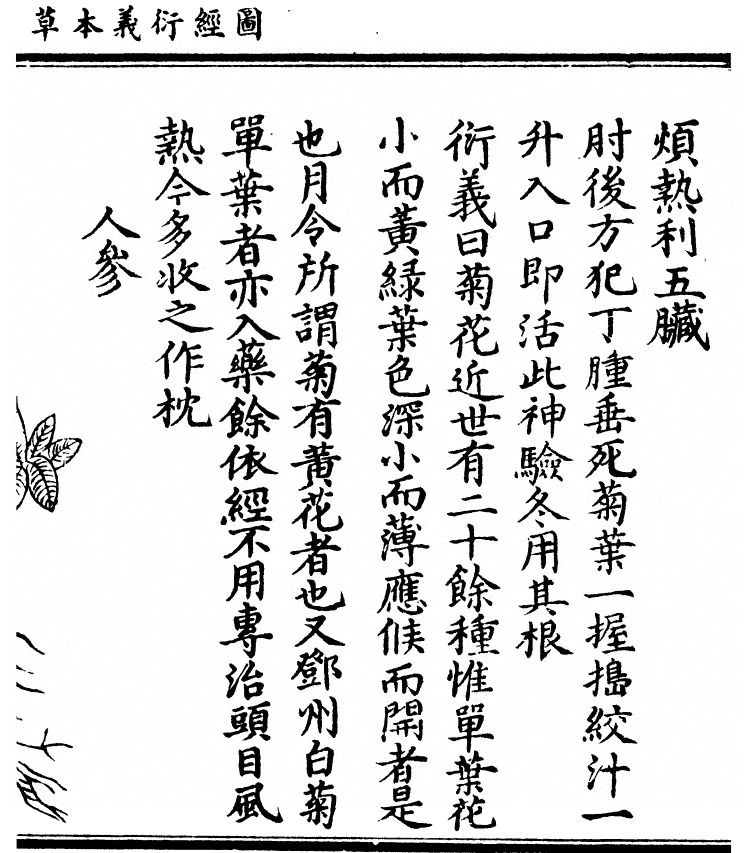 圖經衍義本草
煩熱利五臟
肘後方犯丁腫垂死菊葉一握搗絞汁一
升入口即活此神驗冬用其根
衍義曰菊花近世有二十餘種惟單葉花
小而黃綠葉色深小而薄應候而開者是
也月令所謂菊有黃花者也又鄧州白菊
單葉者亦入藥餘依經不用專治頭目風
熱今多收之作枕
人參